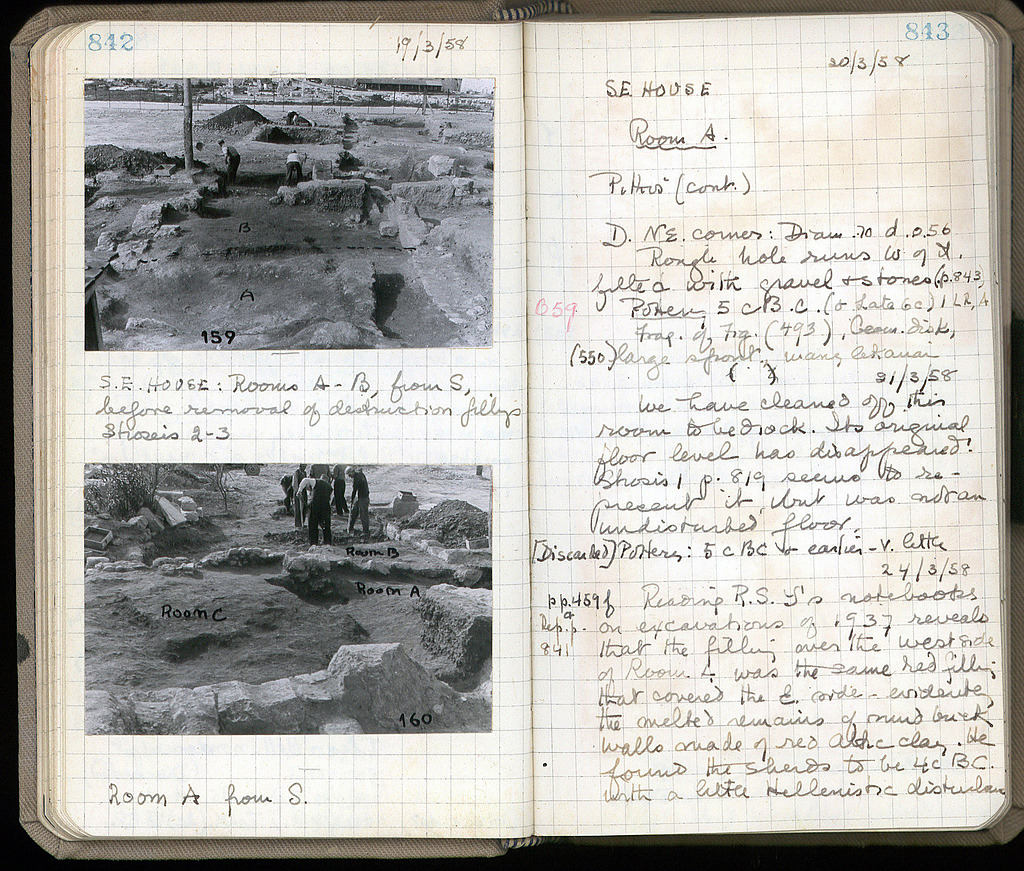 842
19/3/58
B
A
159
S.E. HOUSE: Rooms A-B, from S,
before removal of destruction filling
Strosis 2-3
Room B
Room A
Room C
160
Room A from S.
843
20/3/58
SE HOUSE
Room A.
(cont.)
D. N.E. corner: Diam .70 d .0.56
Rough hole runs W of it.
filled with gravel + stones (p.843,
B59
Pottery 5 c B.C. (+ late 6c) 1 LR,
Frag. of Fig. (493), Geom. disk,
(550) large spout, many lekanai
( )
21/3/58
We have cleaned off this
room to bedrock. Its original
floor level has disappeared!
Strosis 1 p. 819 seems to re-
present it, but was not an
undisturbed floor.
[Discarded] Pottery: 5 c BC + earlier - v. little
24/3/58
pp.459f Reading R.S. Y's notebooks
Dep. p. on excavations of 1937 reveals
841 that the filling over the west side
of Room A was the same red filling
that covered the E. side - evidently
the melted remains of mud brick
walls made of red Attic clay. He
found the sherds to be 4c BC.
with a little Hellenistic